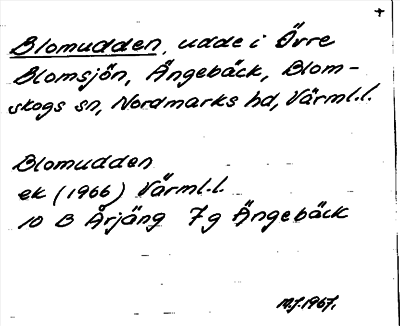 +
Blomudden, udde i Övre
Blomsjön, Ängebäck, Blom-
skogs sn, Nordmarks hd, Värml.l.
Blomudden
ek (1966) Värml.l.
10 B Årjäng 7g Ängebäck
1967.